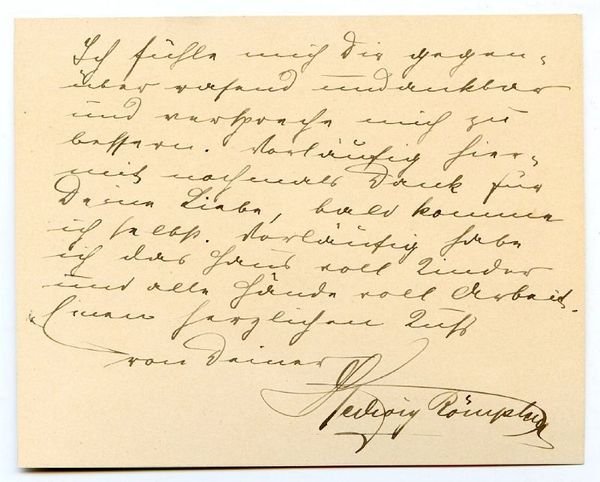 Ich fühle mich Dir gegen-
über rasend undankbar
und verspreche mich zu
bessern. Vorläufig hier-
mit nochmals Dank für
Deine Liebe, bald komme
ich selbst. Vorläufig habe
ich das Haus voll Kinder
und alle Hände voll Arbeit.
Einen herzlichen Kuß
von Deiner
Hedwig